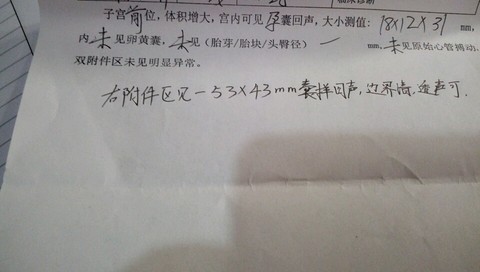 临床诊断
子宫前位，体积增大，宫内可见孕囊回声，大小测值：18×12×31 mm，
内未见卵黄囊，未见（胎芽/胎块/头臀径）— mm，未见原始心管搏动，
双附件区未见明显异常。
右附件区见一53×43mm囊样回声，边界清，透声可．